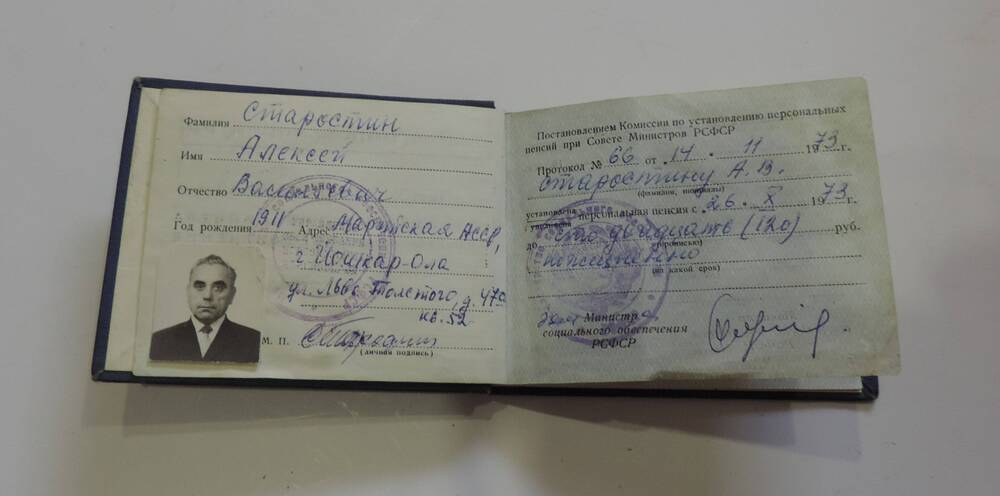 Фамилия Старостин
Имя Алексей
Отчество Васильевич
Год рождения 1911 Адрес Марийская АССР,
г. Йошкар-Ола
ул. Льва Толстого, д. 47а
кв. 52
М. П.
(личная подпись)
Постановлением Комиссии по установлению персональных
пенсий при Совете Министров РСФСР
Протокол № 66 от 14 . 11 1973 г.
Старостину А. В.
(фамилия, инициалы)
установлена персональная пенсия с 26. X 1973 г.
увеличена
до сто двадцать (120) руб.
(прописью)
пожизненно
(на какой срок)
Зам. Министра
социального обеспечения
РСФСР